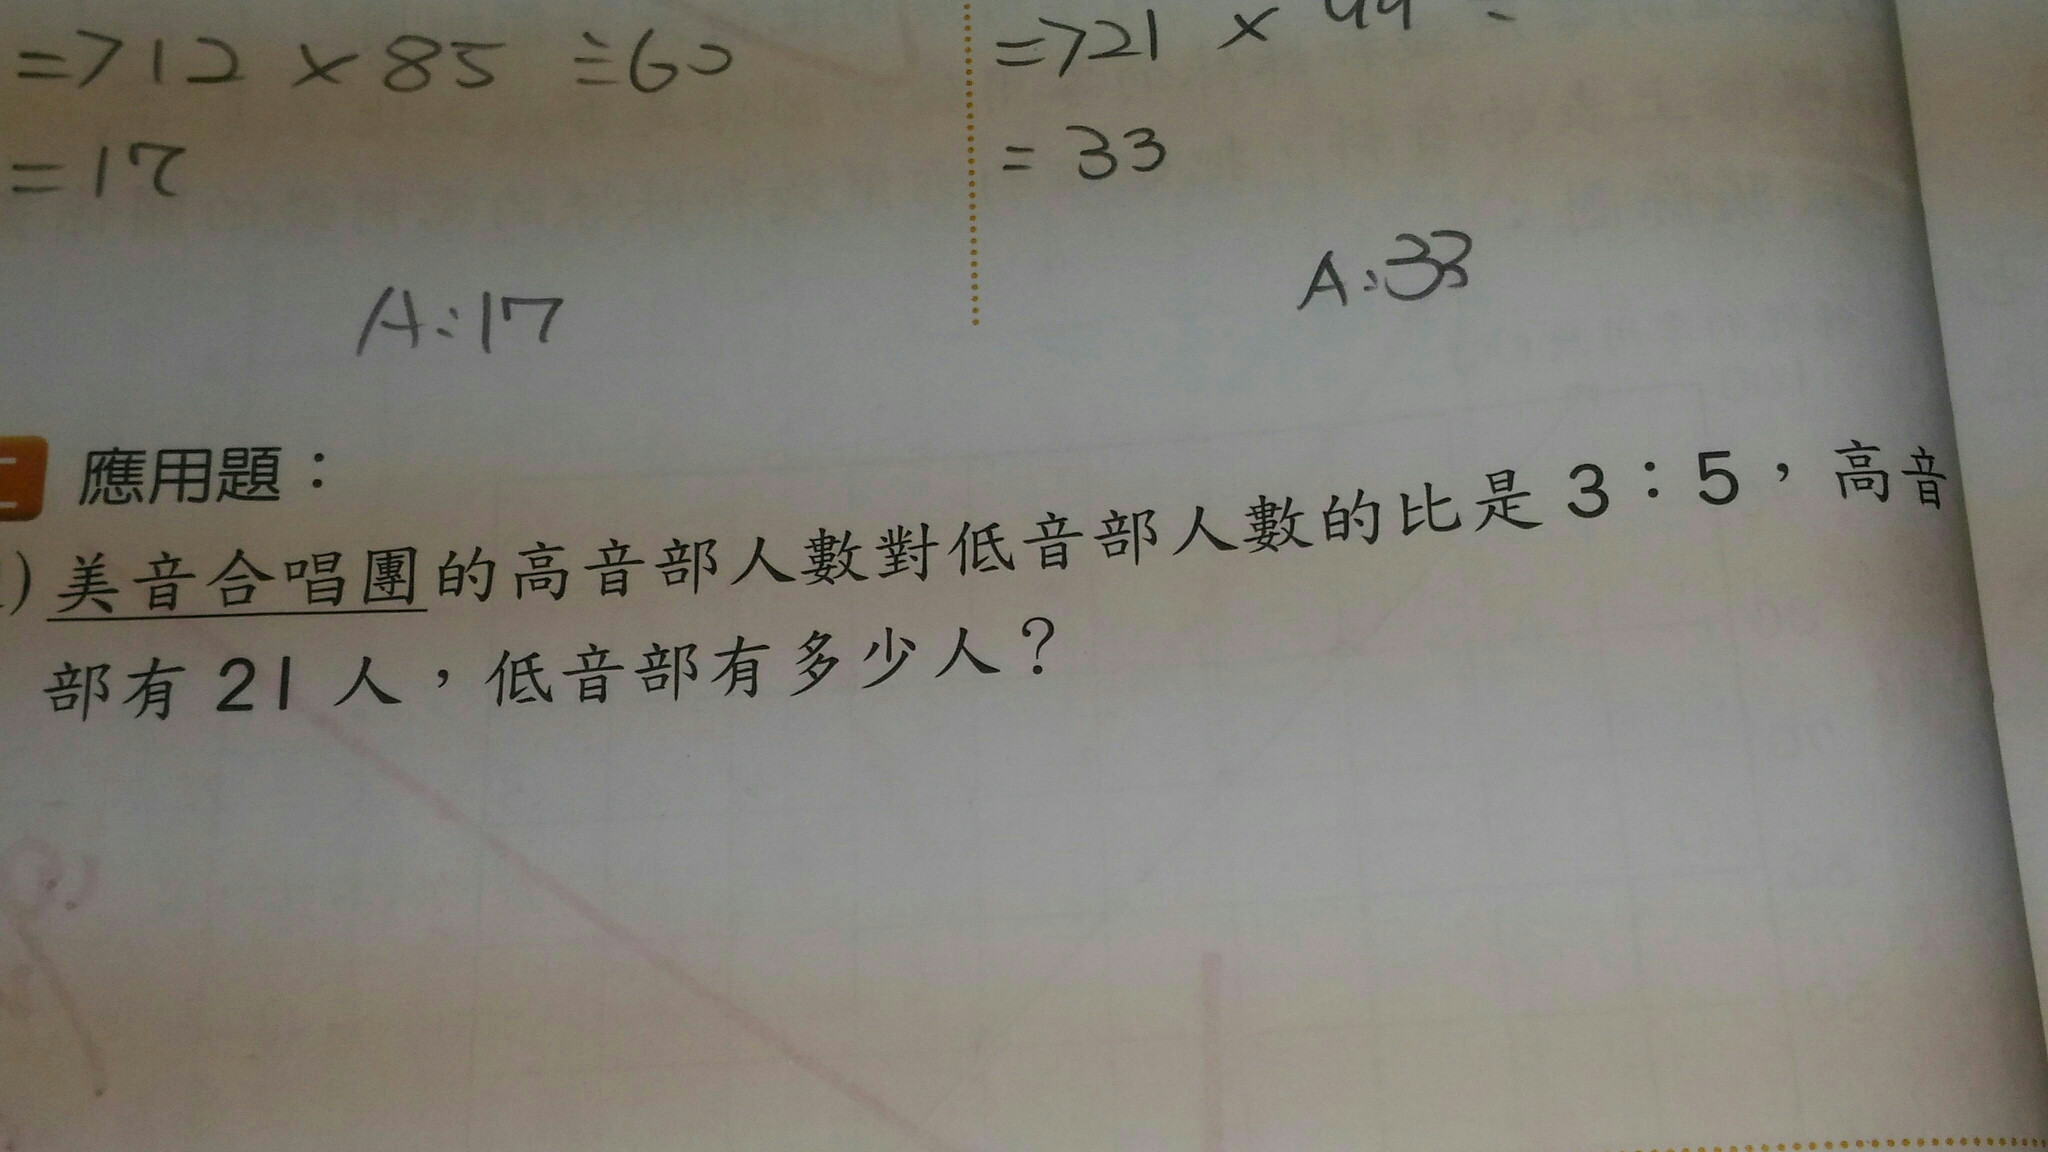 =>12 × 85 ÷60
=17
A:17
=>21 × 44
= 33
A:33
二 應用題：
) 美音合唱團的高音部人數對低音部人數的比是 3：5，高音
部有 21 人，低音部有多少人？